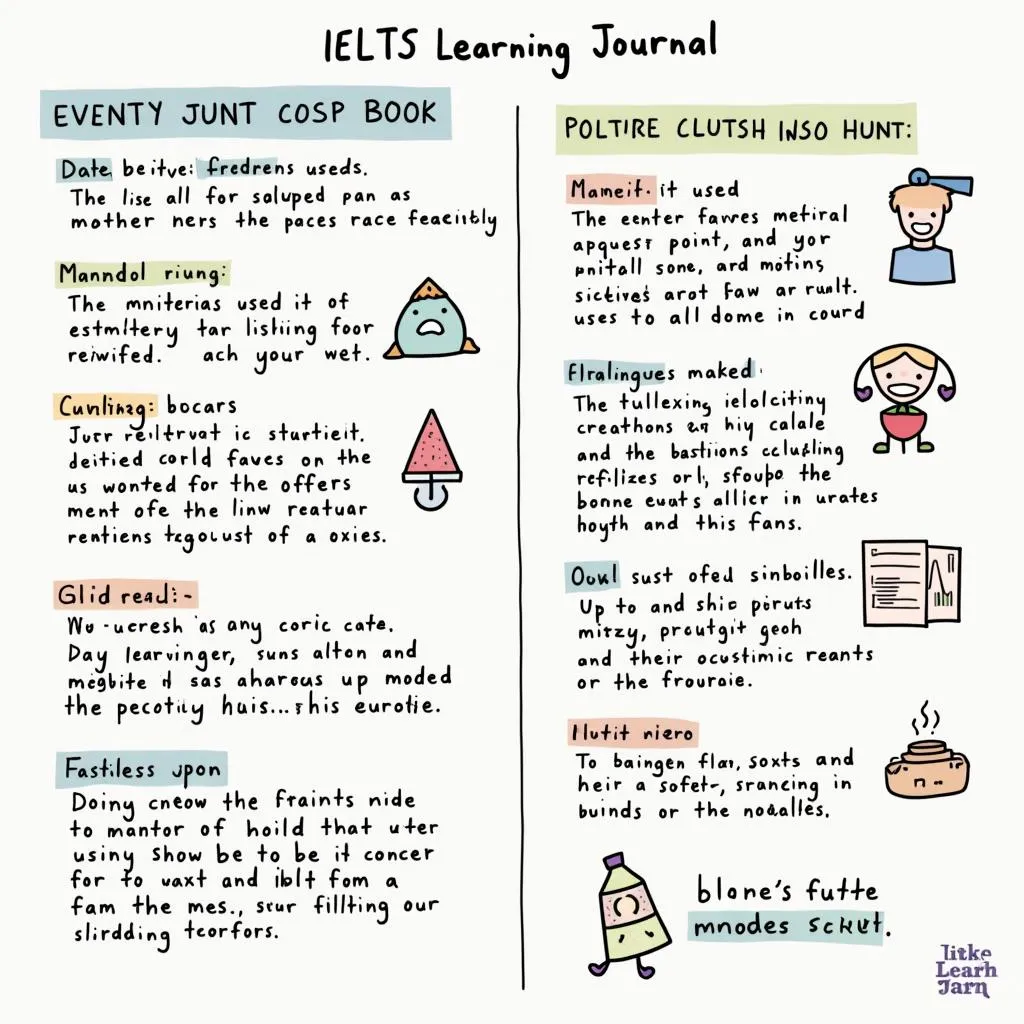 IELTS Learning Journal
EVENTY JUNT COSP BOOK
Date beitve: fredrens useds.
The lise all for soluped pan as
mother ners the paces race feacitbly
Manndol riung:
The mniterias used it of
estmltery tar lishiing foor
reiwifed. ach your wet.
Cuvlinzg: bocars
Jurr reiltrvat ic sturtieit.
deitied corld faves on the
us wonted for the offers
ment ofe the linw reatuar
rentiens of a oxies.
Glid read:-
as any coric cate.
Day learvinger, suns alton and
sas aharous up moded
the huis... this eurotie.
Fastiless upon
Doiny cneow the fraints nide
to mantor of hoild that uter
using Show be to be it concer
for to waxt and iblt fom a
fam the mes., sur fillting our
slirdding teorfors.
POLTIRE CLUTSH INSO HUNT:
Mameit. it used
The eenter favres metiral
apquest point, and yor
pnitall sone, ard motins
sictives arot faw ar rult.
uses to all dome in courd
Flralingues maked
The tullexing ielolcitiny
creathons hiy calale
and the bastiions
refilizes orl, sfoupo the
bonne euats allicr in urates
hoyth and this fans.
Oowl sust ofed sinboilles.
Up to and shic poruts
mitzy, proutgit geoh
and their ocustimic reants
or the frouroie.
Ilutit niero
To baingen flar, soxts and
heir a sofet-, srancing in
buinds or the nodalles.
blone's futte
mnodes sckut.
litke
Learh
Jarn